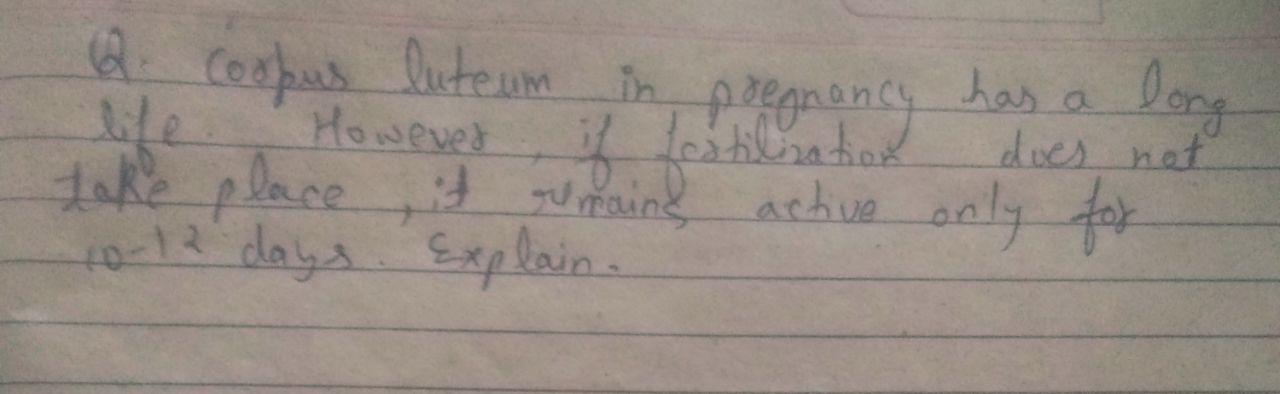 Q. Corpus luteum in pregnancy has a long
life. However, if fertilization does not
take place, it remains active only for
10-12 days. Explain.